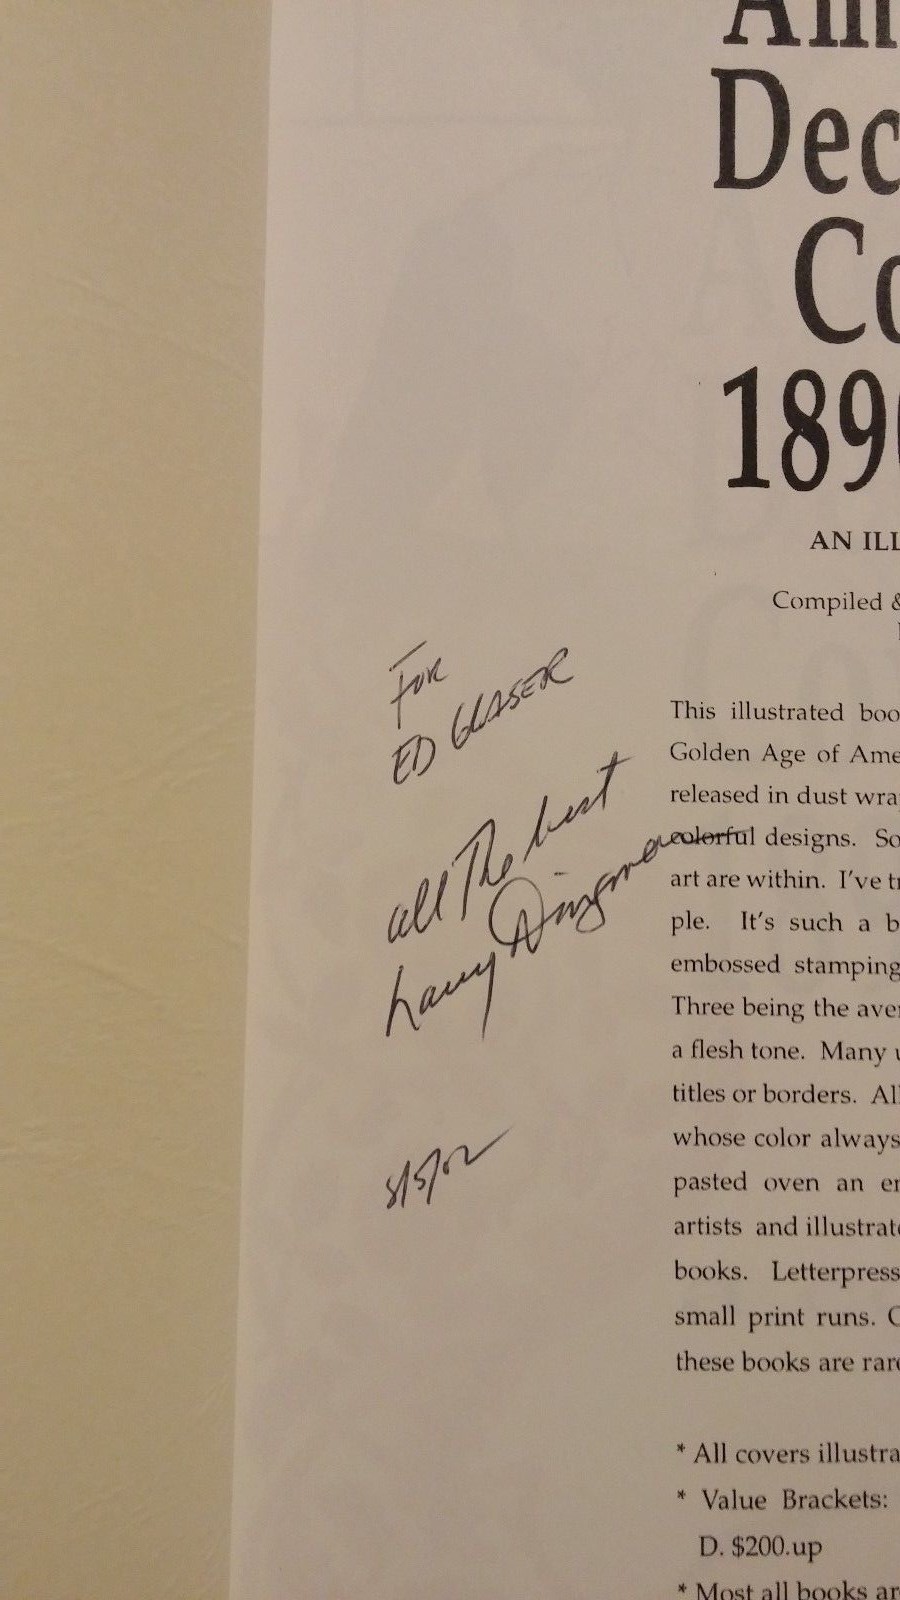 Am
Dec
Co
1890
AN ILL
Compiled &
For
ED GLASER
all The best
Larry Dingman
8/5/02
This illustrated boo
Golden Age of Ame
released in dust wra
colorful designs. So
art are within. I've tr
ple. It's such a b
embossed stamping
Three being the aver
a flesh tone. Many u
titles or borders. All
whose color always
pasted oven an en
artists and illustrate
books. Letterpress
small print runs. C
these books are rare
* All covers illustra
* Value Brackets:
D. $200.up
* Most all books ar